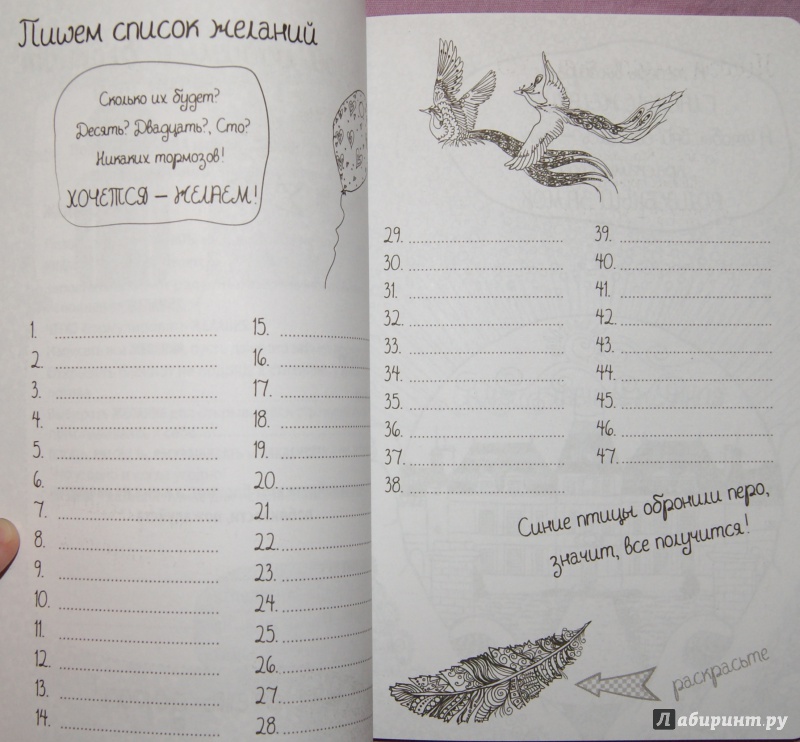 Пишем список желаний
Сколько их будет?
Десять? Двадцать?, Сто?
Никаких тормозов!
ХОЧЕТСЯ — ЖЕЛАЕМ!
1.
2.
3.
4.
5.
6.
7.
8.
9.
10.
11.
12.
13.
14.
15.
16.
17.
18.
19.
20.
21.
22.
23.
24.
25.
26.
27.
28.
29.
30.
31.
32.
33.
34.
35.
36.
37.
38.
39.
40.
41.
42.
43.
44.
45.
46.
47.
Синие птицы обронили перо,
значит, все получится!
раскрасьте
Лабиринт.ру